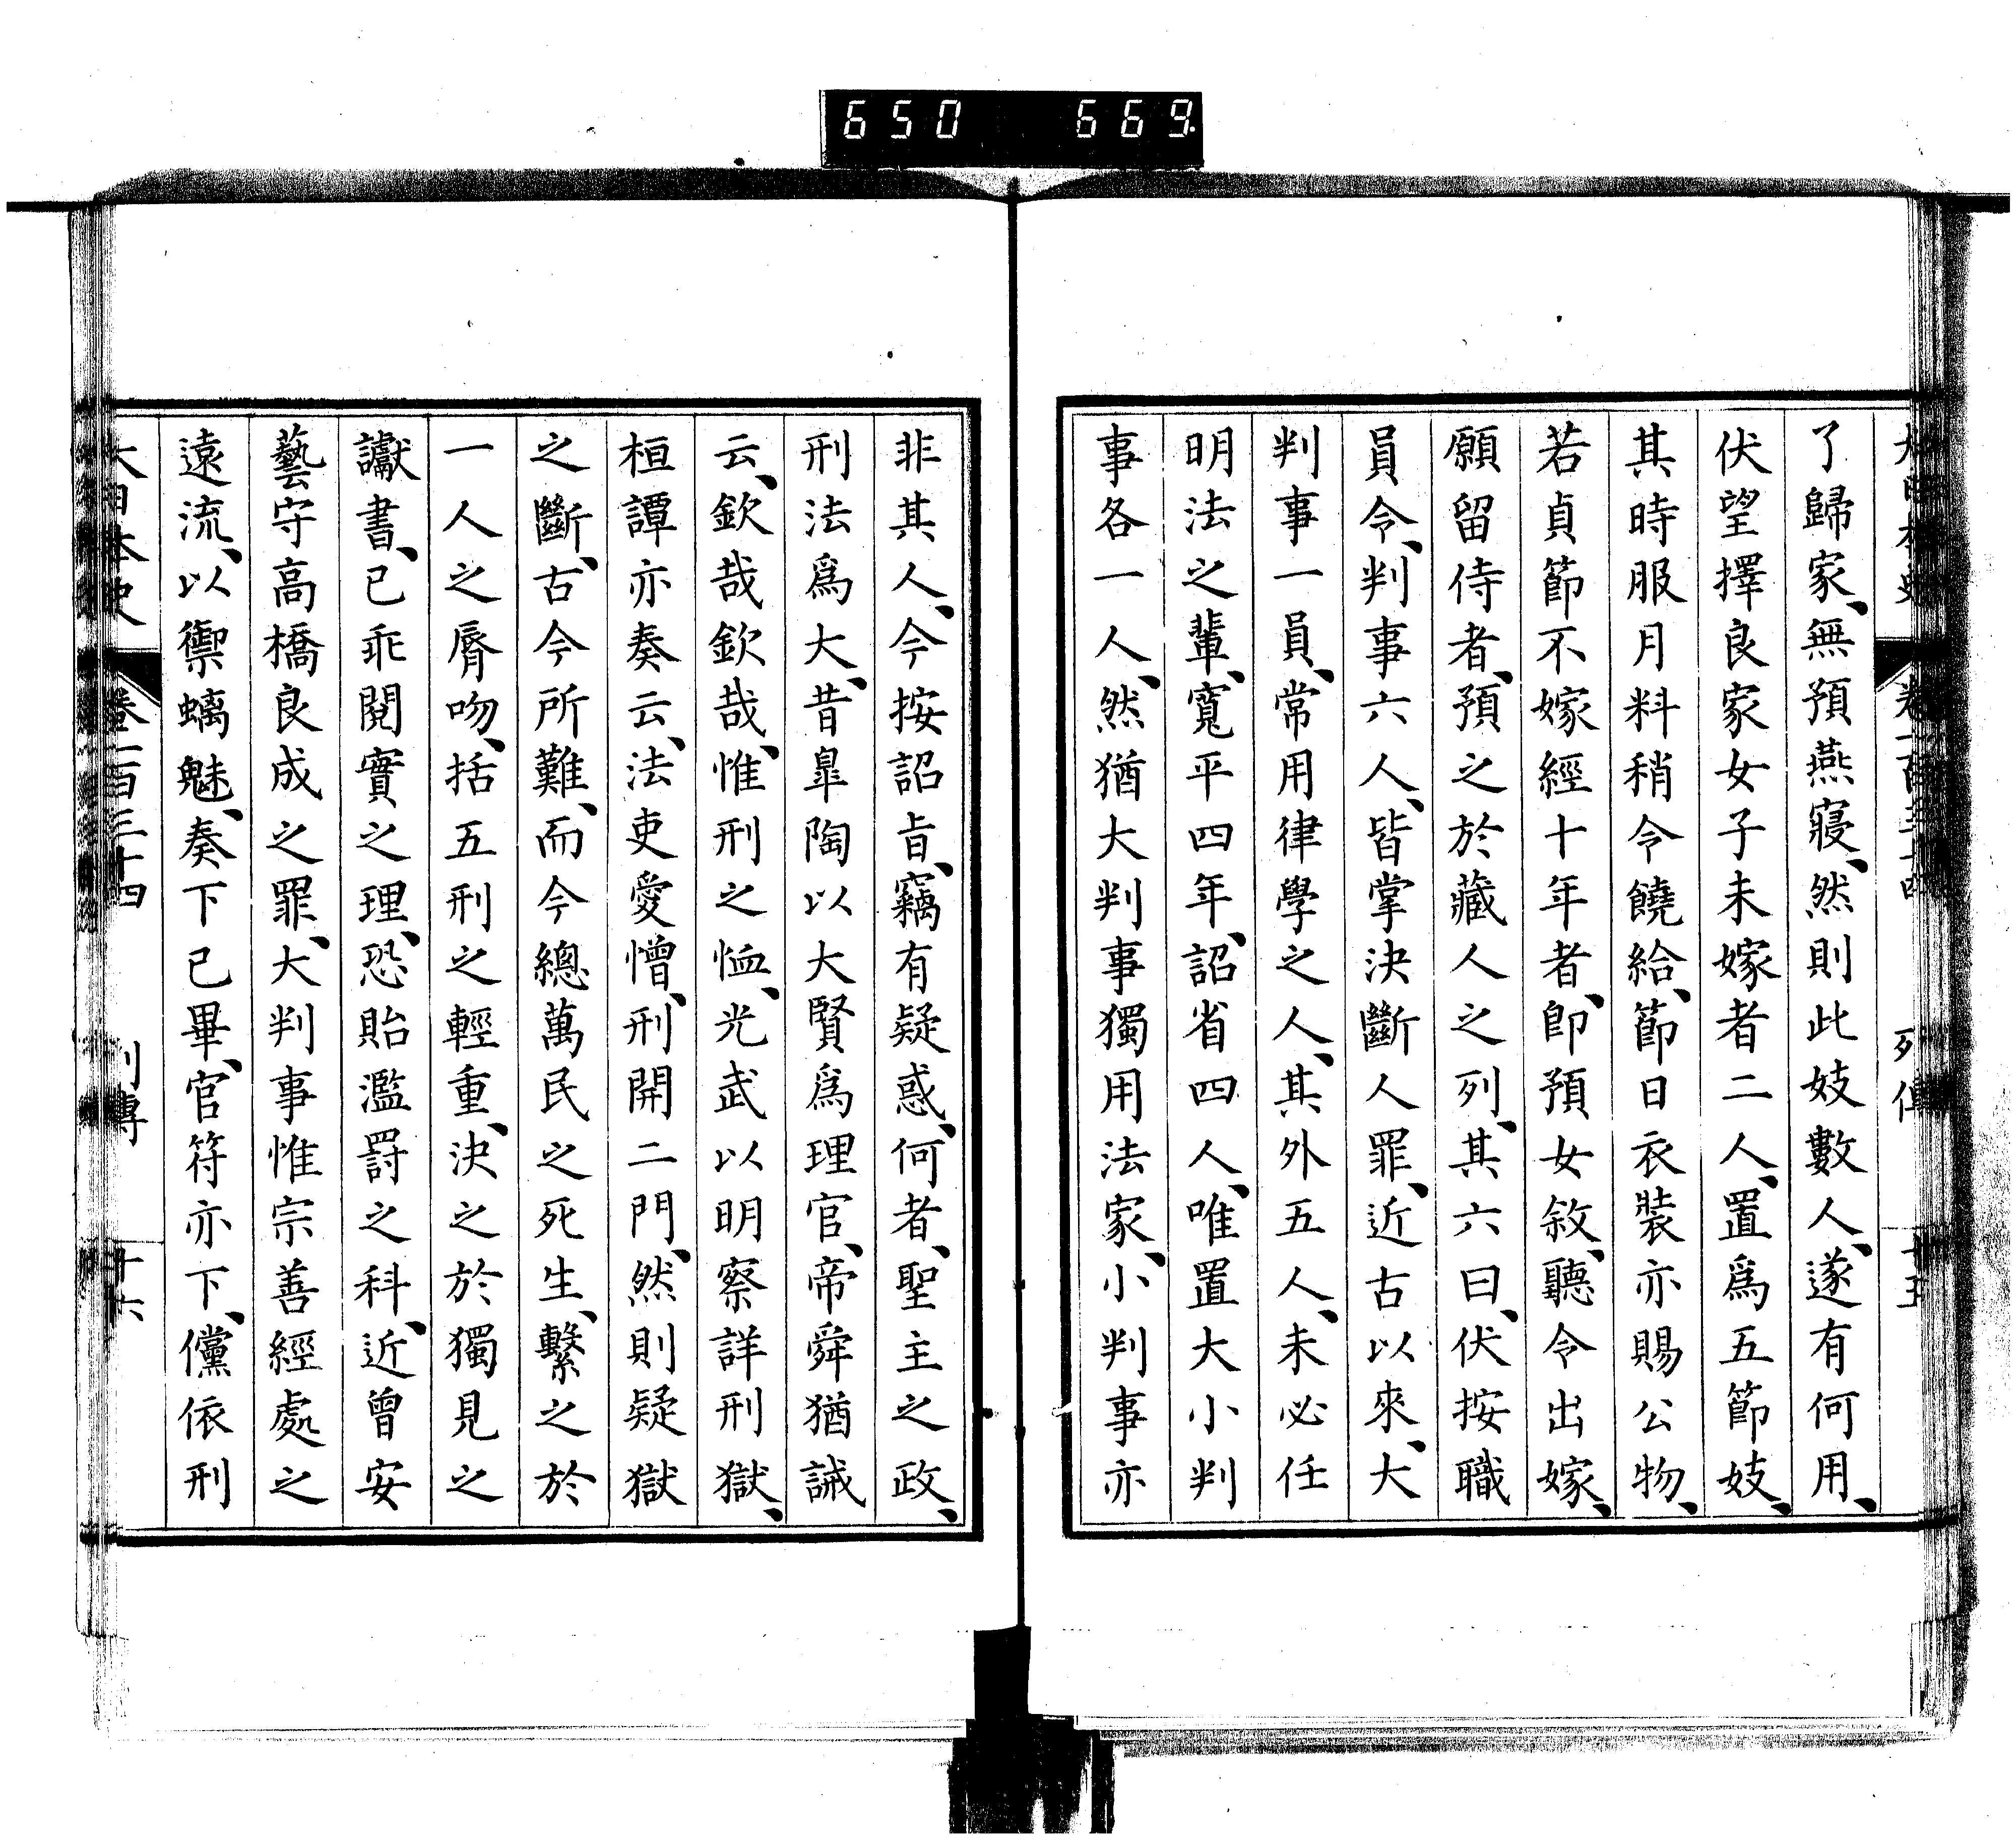 650 669.
大日本史 卷一百三十四 列傳 十五
了歸家、無預燕寢、然則此妓數人、遂有何用、
伏望擇良家女子未嫁者二人、置爲五節妓、
其時服月料稍令饒給、節日衣裝亦賜公物、
若貞節不嫁經十年者、卽預女敘、聽令出嫁、
願留侍者、預之於藏人之列、其六曰、伏按職
員令、判事六人、皆掌決斷人罪、近古以來、大
判事一員、常用律學之人、其外五人、未必任
明法之輩、寬平四年、詔省四人、唯置大小判
事各一人、然猶大判事獨用法家、小判事亦
非其人、今按詔旨、竊有疑惑、何者、聖主之政、
刑法爲大、昔皐陶以大賢爲理官、帝舜猶誡
云、欽哉欽哉、惟刑之恤、光武以明察詳刑獄、
桓譚亦奏云、法吏愛憎、刑開二門、然則疑獄
之斷、古今所難、而今總萬民之死生、繫之於
一人之脣吻、括五刑之輕重、決之於獨見之
讞書、已乖閱實之理、恐貽濫罰之科、近曾安
藝守高橋良成之罪、大判事惟宗善經處之
遠流、以禦螭魅、奏下已畢、官符亦下、儻依刑
大日本史 卷一百三十四 列傳 十六